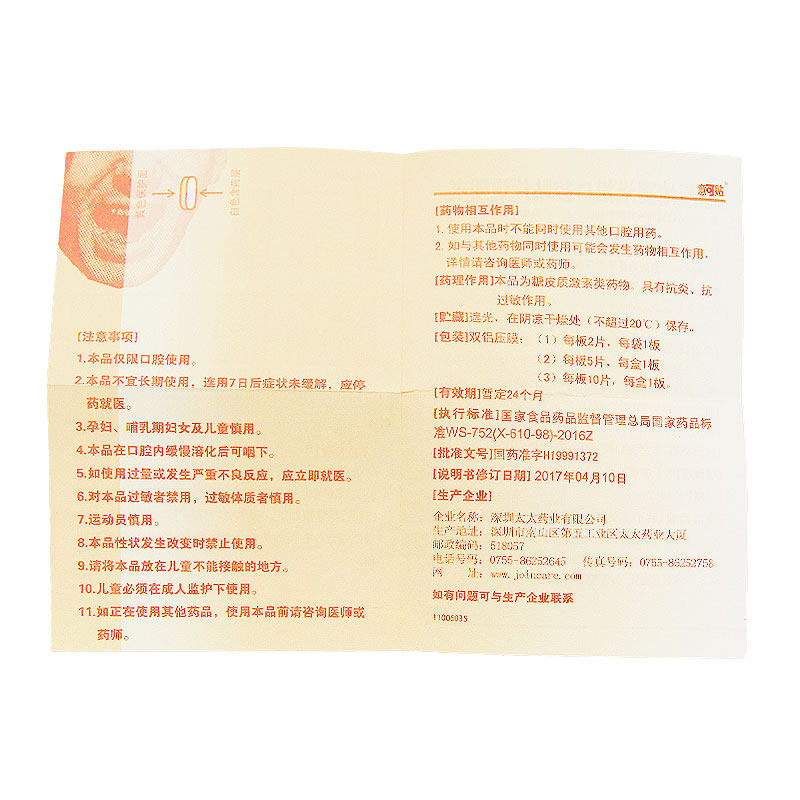 黄色保护面
白色含药层
[注意事项]
1.本品仅限口腔使用。
2.本品不宜长期使用，连用7日后症状未缓解，应停
药就医。
3.孕妇、哺乳期妇女及儿童慎用。
4.本品在口腔内缓慢溶化后可咽下。
5.如使用过量或发生严重不良反应，应立即就医。
6.对本品过敏者禁用，过敏体质者慎用。
7.运动员慎用。
8.本品性状发生改变时禁止使用。
9.请将本品放在儿童不能接触的地方。
10.儿童必须在成人监护下使用。
11.如正在使用其他药品，使用本品前请咨询医师或
药师。
意可贴
[药物相互作用]
1. 使用本品时不能同时使用其他口腔用药。
2. 如与其他药物同时使用可能会发生药物相互作用，
详情请咨询医师或药师。
[药理作用]本品为糖皮质激素类药物。具有抗炎、抗
过敏作用。
[贮藏]遮光，在阴凉干燥处（不超过20℃）保存。
[包装]双铝压膜：（1）每板2片，每袋1板
（2）每板5片，每盒1板
（3）每板10片，每盒1板。
[有效期]暂定24个月
[执行标准]国家食品药品监督管理总局国家药品标
准WS-752(X-610-98)-2016Z
[批准文号]国药准字H19991372
[说明书修订日期] 2017年04月10日
[生产企业]
企业名称：深圳太太药业有限公司
生产地址：深圳市南山区第五工业区太太药业大厦
邮政编码：518057
电话号码：0755-86252645 传真号码：0755-86252758
网 址：www.joincare.com
如有问题可与生产企业联系
11006035